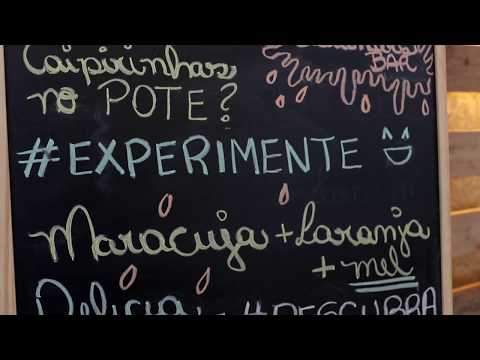 Caipirinhas
no POTE?
BAR
#EXPERIMENTE
Maracujá + Laranja
+ mel
Delícia
#DESCUBRA